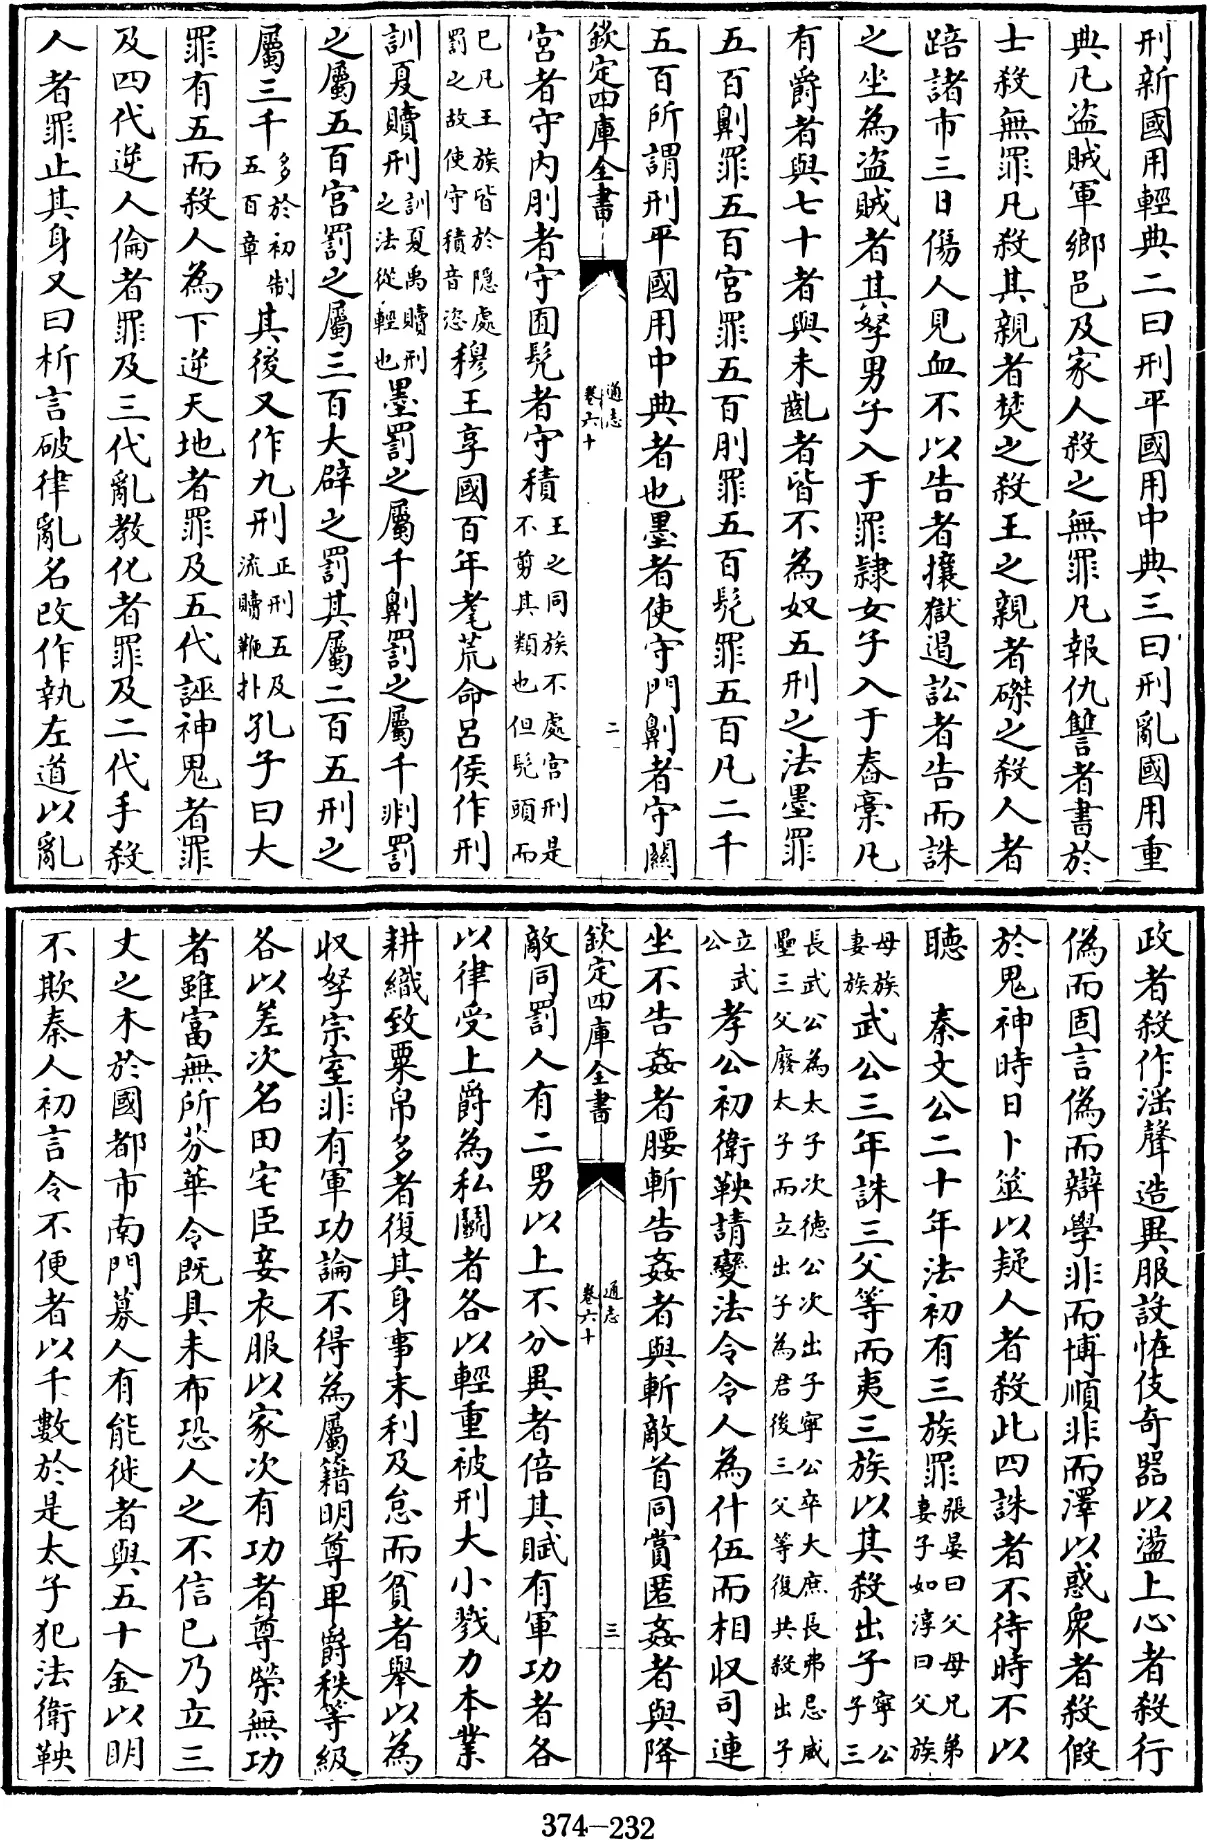 刑新國用輕典二曰刑平國用中典三曰刑亂國用重
典凡盜賊軍鄉邑及家人殺之無罪凡報仇讐者書於
士殺無罪凡殺其親者焚之殺王之親者磔之殺人者
踣諸市三日傷人見血不以告者攘獄遏訟者告而誅
之坐為盜賊者其孥男子入于罪隸女子入于舂槀凡
有爵者與七十者與未齓者皆不為奴五刑之法墨罪
五百劓罪五百宮罪五百刖罪五百髡罪五百凡二千
五百所謂刑平國用中典者也墨者使守門劓者守關
欽定四庫全書
通志
卷六十
二
宮者守內刖者守囿髡者守積王之同族不處宮刑是不剪其類也但髡頭而
已凡王族皆於隱處罰之故使守積音恣穆王享國百年耄荒命呂侯作刑
訓夏贖刑訓夏禹贖刑之法從輕也墨罰之屬千劓罰之屬千剕罰
之屬五百宮罰之屬三百大辟之罰其屬二百五刑之
屬三千多於初制五百章其後又作九刑正刑五及流贖鞭扑孔子曰大
罪有五而殺人為下逆天地者罪及五代誣神鬼者罪
及四代逆人倫者罪及三代亂教化者罪及二代手殺
人者罪止其身又曰析言破律亂名改作執左道以亂
政者殺作滛聲造異服設恠伎奇器以盪上心者殺行
偽而固言偽而辯學非而博順非而澤以惑衆者殺假
於鬼神時日卜筮以疑人者殺此四誅者不待時不以
聽　秦文公二十年法初有三族罪張晏曰父母兄弟妻子如淳曰父族
母族妻族武公三年誅三父等而夷三族以其殺出子寧公子三
長武公為太子次德公次出子寧公卒大庶長弗忌威壘三父廢太子而立出子為君後三父等復共殺出子
立武公孝公初衛鞅請變法令令人為什伍而相收司連
坐不告姦者腰斬告姦者與斬敵首同賞匿姦者與降
欽定四庫全書
通志
卷六十
三
敵同罰人有二男以上不分異者倍其賦有軍功者各
以律受上爵為私鬭者各以輕重被刑大小戮力本業
耕織致粟帛多者復其身事末利及怠而貧者舉以為
收孥宗室非有軍功論不得為屬籍明尊卑爵秩等級
各以差次名田宅臣妾衣服以家次有功者尊榮無功
者雖富無所芬華令既具未布恐人之不信已乃立三
丈之木於國都市南門募人有能徙者與五十金以明
不欺秦人初言令不便者以千數於是太子犯法衛鞅
374-232